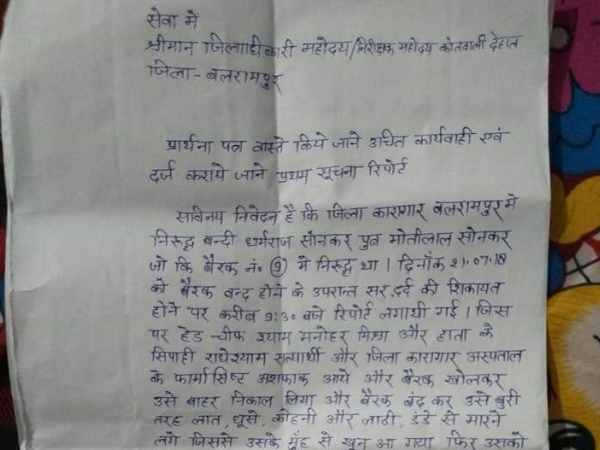 सेवा में
श्रीमान जिलाधिकारी महोदय/निरीक्षक महोदय कोतवाली देहात
जिला - बलरामपुर
प्रार्थना पत्र वास्ते किये जाने उचित कार्यवाही एवं
दर्ज कराये जाने प्रथम सूचना रिपोर्ट
सविनय निवेदन है कि जिला कारागार बलरामपुर मे
निरूद्ध बन्दी धर्मराज सोनकर पुत्र मोतीलाल सोनकर
जो कि बैरक नं० 9 मे निरूद्ध था। दिनाँक 21.07.18
को बैरक बन्द होने के उपरान्त सर दर्द की शिकायत
होने पर करीब 9:30 बजे रिपोर्ट लगायी गई। जिस
पर हेड चीफ श्याम मनोहर मिश्रा और हाता के
सिपाही राधेश्याम सत्यार्थी और जिला कारागार अस्पताल
के फार्मासिष्ट अशफाक आये और बैरक खोलकर
उसे बाहर निकाल लिया और बैरक बंद कर उसे बुरी
तरह लात, घूसे, कोहनी और लाठी, डंडे से मारने
लगे जिससे उसके मुँह से खून आ गया फिर उसको